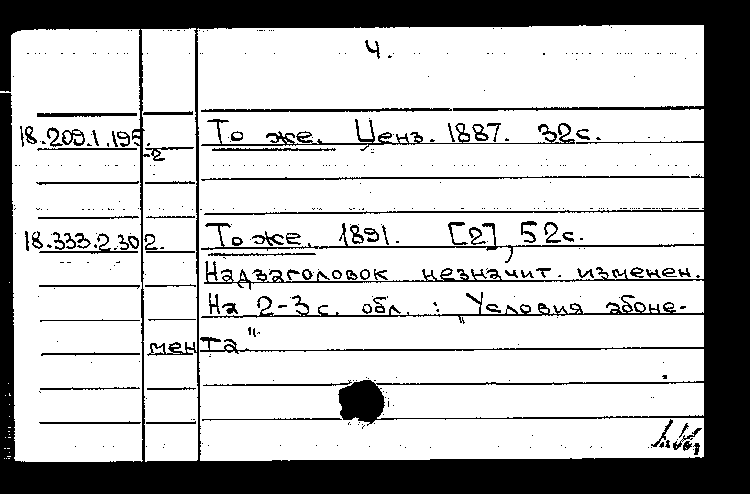 4.
18.209.1.195. То же. Ценз. 1887. 32с.
-2
18.333.2.302. То же. 1891. [2], 52с.
Надзаголовок незначит. изменен.
На 2-3 с. обл.: "Условия абоне-
мента".